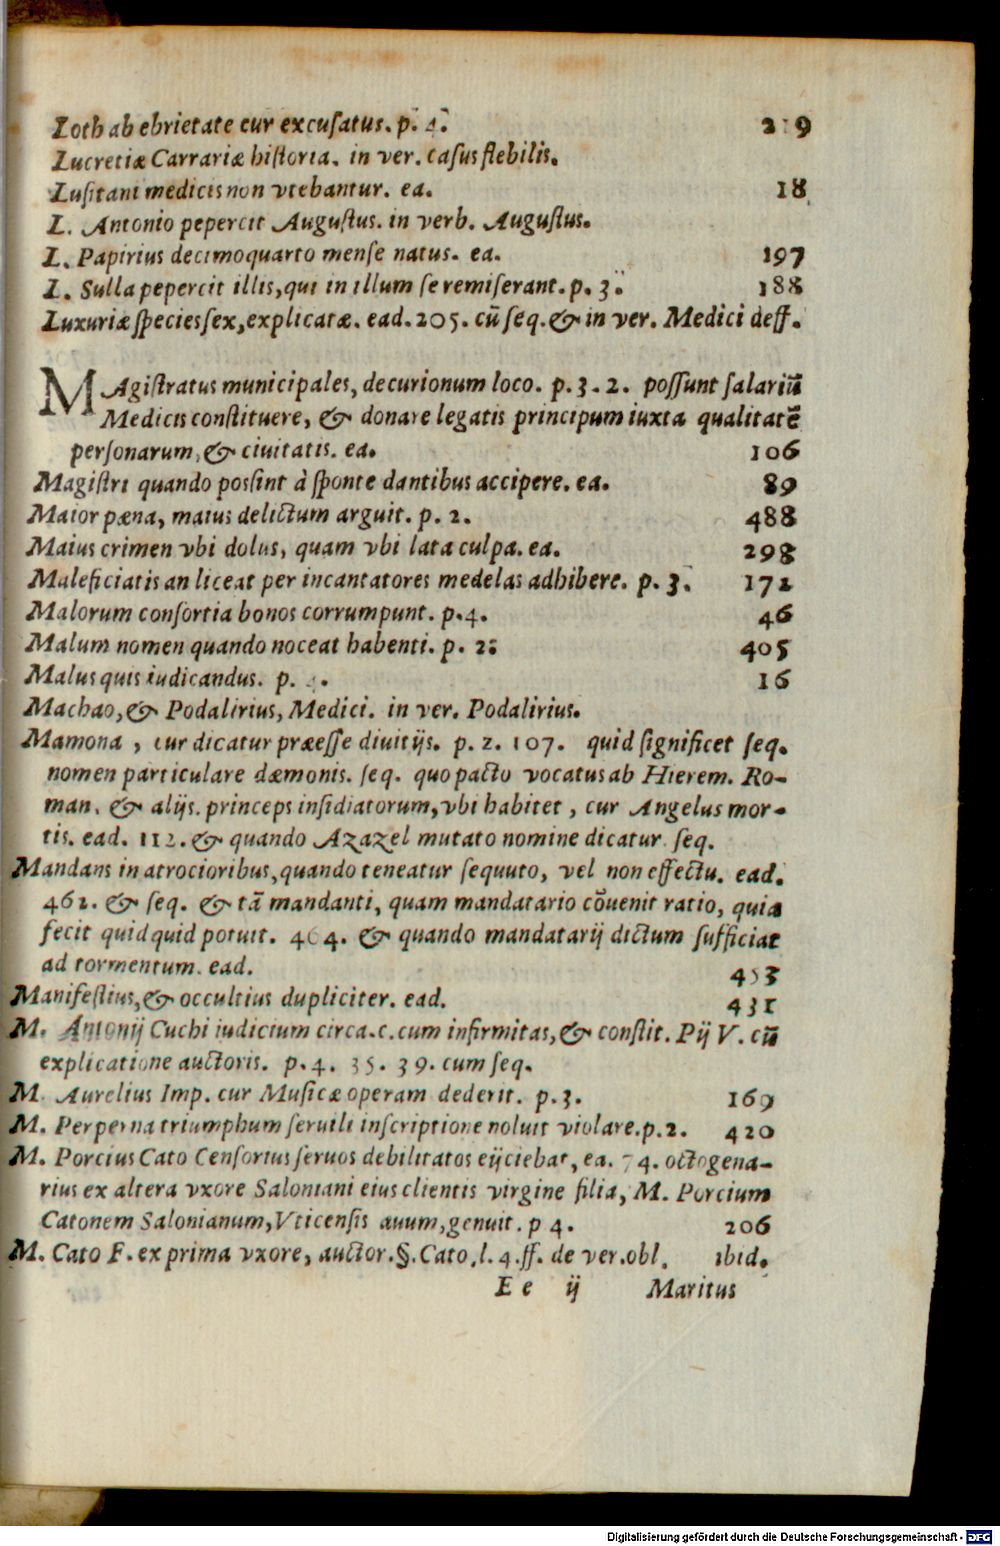 Loth ab ebrietate cur excusatus. p. 4. 219
Lucretiæ Carrariæ historia. in ver. casus flebilis.
Lusitani medicis non vtebantur. ea. 18
L. Antonio pepercit Augustus. in verb. Augustus.
L. Papirius decimoquarto mense natus. ea. 197
L. Sulla pepercit illis, qui in illum se remiserant. p. 3. 188
Luxuriæ species sex, explicatæ. ead. 205. cū seq. & in ver. Medici deff.
MAgistratus municipales, decurionum loco. p. 3. 2. possunt salariū
Medicis constituere, & donare legatis principum iuxta qualitatē
personarum, & ciuitatis. ea. 106
Magistri quando possint à sponte dantibus accipere. ea. 89
Maior pæna, maius delictum arguit. p. 2. 488
Maius crimen vbi dolus, quam vbi lata culpa. ea. 298
Maleficiatis an liceat per incantatores medelas adhibere. p. 3. 172
Malorum consortia bonos corrumpunt. p. 4. 46
Malum nomen quando noceat habenti. p. 2. 405
Malus quis iudicandus. p. 4. 16
Machao, & Podalirius, Medici. in ver. Podalirius.
Mamona, cur dicatur præesse diuitijs. p. 2. 107. quid significet seq.
nomen particulare dæmonis. seq. quo pacto vocatus ab Hierem. Ro-
man. & alijs. princeps insidiatorum, vbi habitet, cur Angelus mor-
tis. ead. 112. & quando Azazel mutato nomine dicatur seq.
Mandans in atrocioribus, quando teneatur sequuto, vel non effectu. ead.
461. & seq. & tā mandanti, quam mandatario cōuenit ratio, quia
fecit quidquid potuit. 464. & quando mandatarij dictum sufficiat
ad tormentum. ead. 453
Manifestius, & occultius dupliciter. ead. 431
M. Antonij Cuchi iudicium circa. c. cum infirmitas, & constit. Pij V. cū
explicatione auctoris. p. 4. 35. 39. cum seq.
M. Aurelius Imp. cur Musicæ operam dederit. p. 3. 169
M. Perperna triumphum seruili inscriptione noluit violare. p. 2. 420
M. Porcius Cato Censorius seruos debilitatos eijciebat, ea. 74. octogena-
rius ex altera vxore Saloniani eius clientis virgine filia, M. Porcium
Catonem Salonianum, Vticensis auum, genuit. p 4. 206
M. Cato F. ex prima vxore, auctor. §. Cato, l. 4. ff. de ver. obl. ibid.
E e ij Maritus
Digitalisierung gefördert durch die Deutsche Forschungsgemeinschaft - DFG